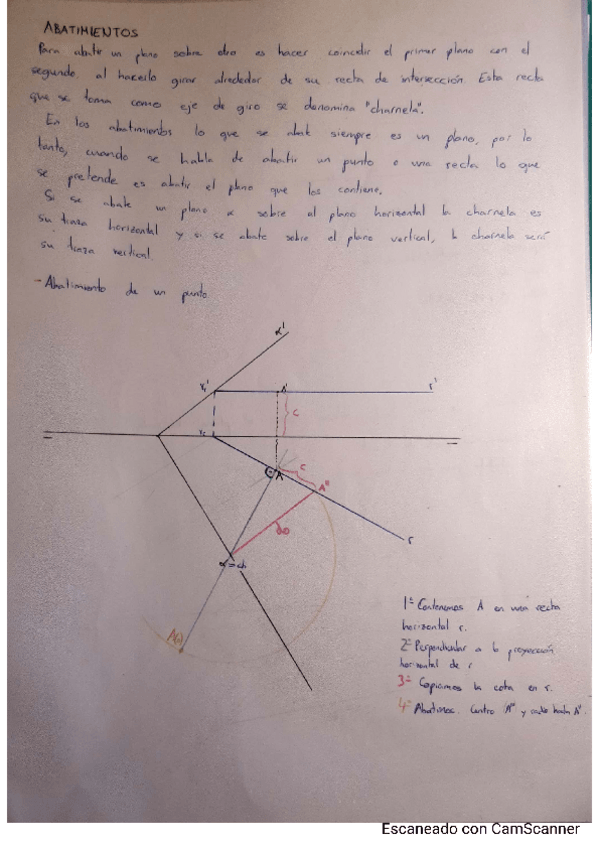 ABATIMIENTOS
Para abatir un plano sobre otro es hacer coincidir el primer plano con el
segundo al hacerlo girar alrededor de su recta de intersección. Esta recta
que se toma como eje de giro se denomina "charnela".
En los abatimientos lo que se abate siempre es un plano, por lo
tanto, cuando se habla de abatir un punto o una recta lo que
se pretende es abatir el plano que los contiene.
Si se abate un plano α sobre el plano horizontal la charnela es
su traza horizontal y si se abate sobre el plano vertical, la charnela será
su traza vertical.
- Abatimiento de un punto
α'
Vr'
A'
r'
c
Vr
c
A
A"
r
α=ch
A(0)
1º Contenemos A en una recta
horizontal r.
2º Perpendicular a la proyección
horizontal de r
3º Copiamos la cota en r.
4º Abatimos. Centro y radio hasta A".
Escaneado con CamScanner